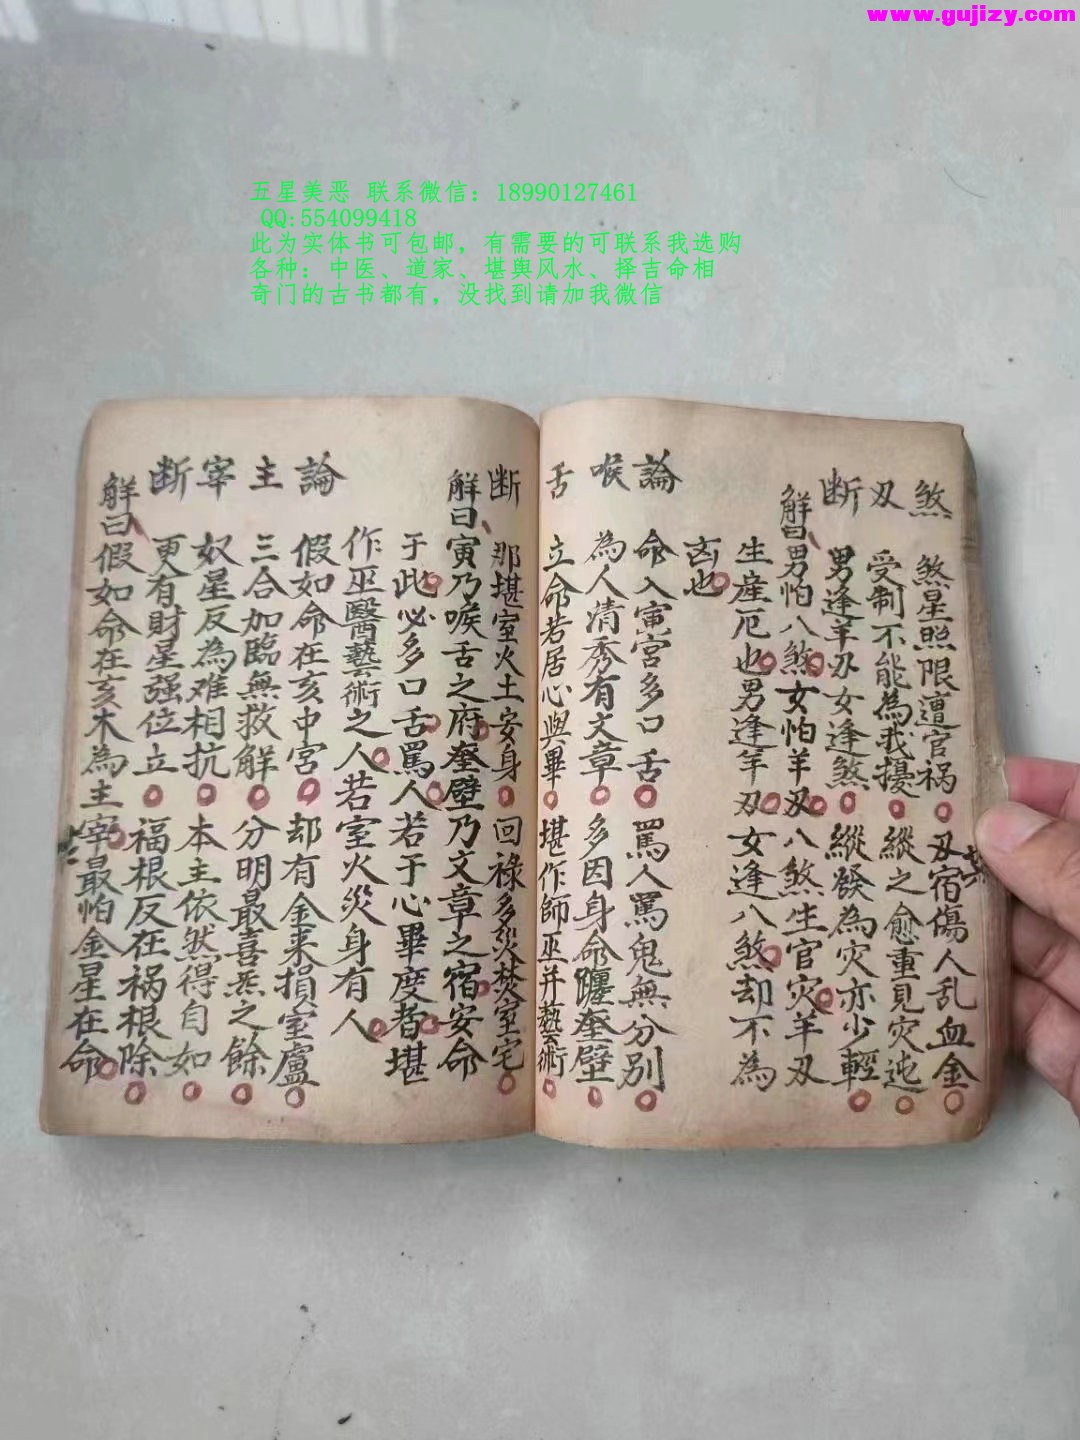 www.gujizy.com
五星美恶 联系微信：18990127461
QQ:554099418
此为实体书可包邮，有需要的可联系我选购
各种：中医、道家、堪舆风水、择吉命相
奇门的古书都有，没找到请加我微信
煞 煞星照限遭官祸 刃宿傷人乱血金
刃 受制不能為我擾 縱之愈重見灾迍
断 男逢羊刄女逢煞 縱發為灾亦少輕
觧曰男怕八煞女怕羊刄八煞生官灾羊刄
生産厄也男逢羊刄女逢八煞却不為
凶也
論 命入寅宮多口舌 罵人罵鬼無分别
喉 為人清秀有文章 多因身命躔奎壁
舌 立命若居心與畢 堪作師巫并藝術
断 那堪室火土安身 回祿多災焚室宅
觧曰寅乃喉舌之府奎壁乃文章之宿安命
于此必多口舌罵人若于心畢度者堪
作巫醫藝術之人若室火災身有人
論 假如命在亥中宮 却有金来損室廬
主 三合加臨無救解 分明最喜炁之餘
宰 奴星反為难相抗 本主依然得自如
断 更有財星强位立 福根反在祸根除
觧曰假如命在亥木為主宰最怕金星在命